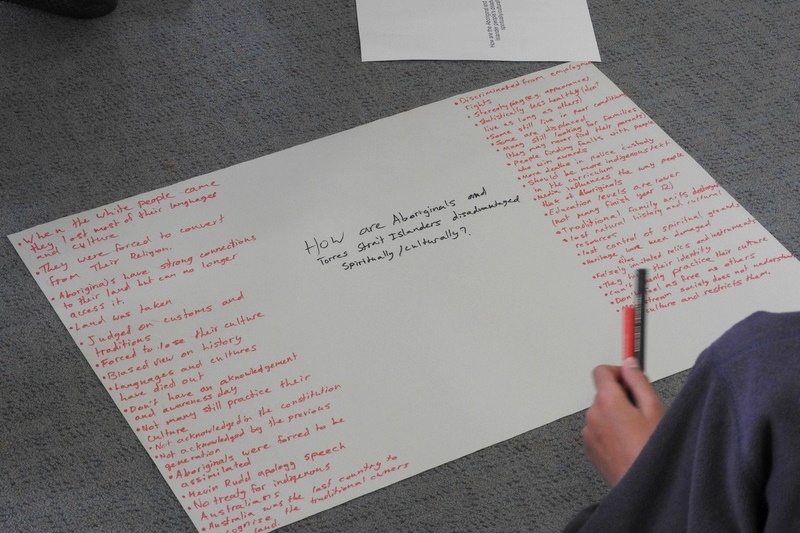 How are the Aboriginal and
How are Aboriginals and
Torres Strait Islanders disadvantaged
Spiritually/culturally?
• When the white people came
they lost most of their languages
and culture
• They were forced to convert
from Their Religion.
• Aboriginals have strong connections
to their land but can no longer
access it.
• Land was taken
• Judged on customs and
traditions
• Forced to lose their culture
• Biased view on history
• Languages and cultures
have died out
• Don't have an acknowledgement
and awareness day
• Not many still practice their
culture
• Not acknowledged in the constitution
• Not acknowledged by the previous
generation
• Aboriginals were forced to be
assimilated
• Kevin Rudd apology speech
• No treaty for indigenous
Australians
• Australia was the last country to
land. the traditional owners
• Discriminated from employment
rights
• Stereotyping (e.g. appearance)
• Statistically less healthy (don't
live as long as others)
• Some still live in poor conditions
• Some are displaced
• Many still looking for families
(they may never find their parents)
• People finding faults with people
who win awards
• More deaths in police custody
• Should be more indigenous text
in the curriculum
• Media influences the way people
think of Aboriginals
• Education levels are lower
(not many finish year 12)
• Traditional family units destroyed
• Lost natural, history and cultural
resources
• Lost control of spiritual grounds
• Heritage have been damaged
relics and instruments
their identity
practice their culture
• Don't feel as free as others
stream society does not understand
culture and restricts them.